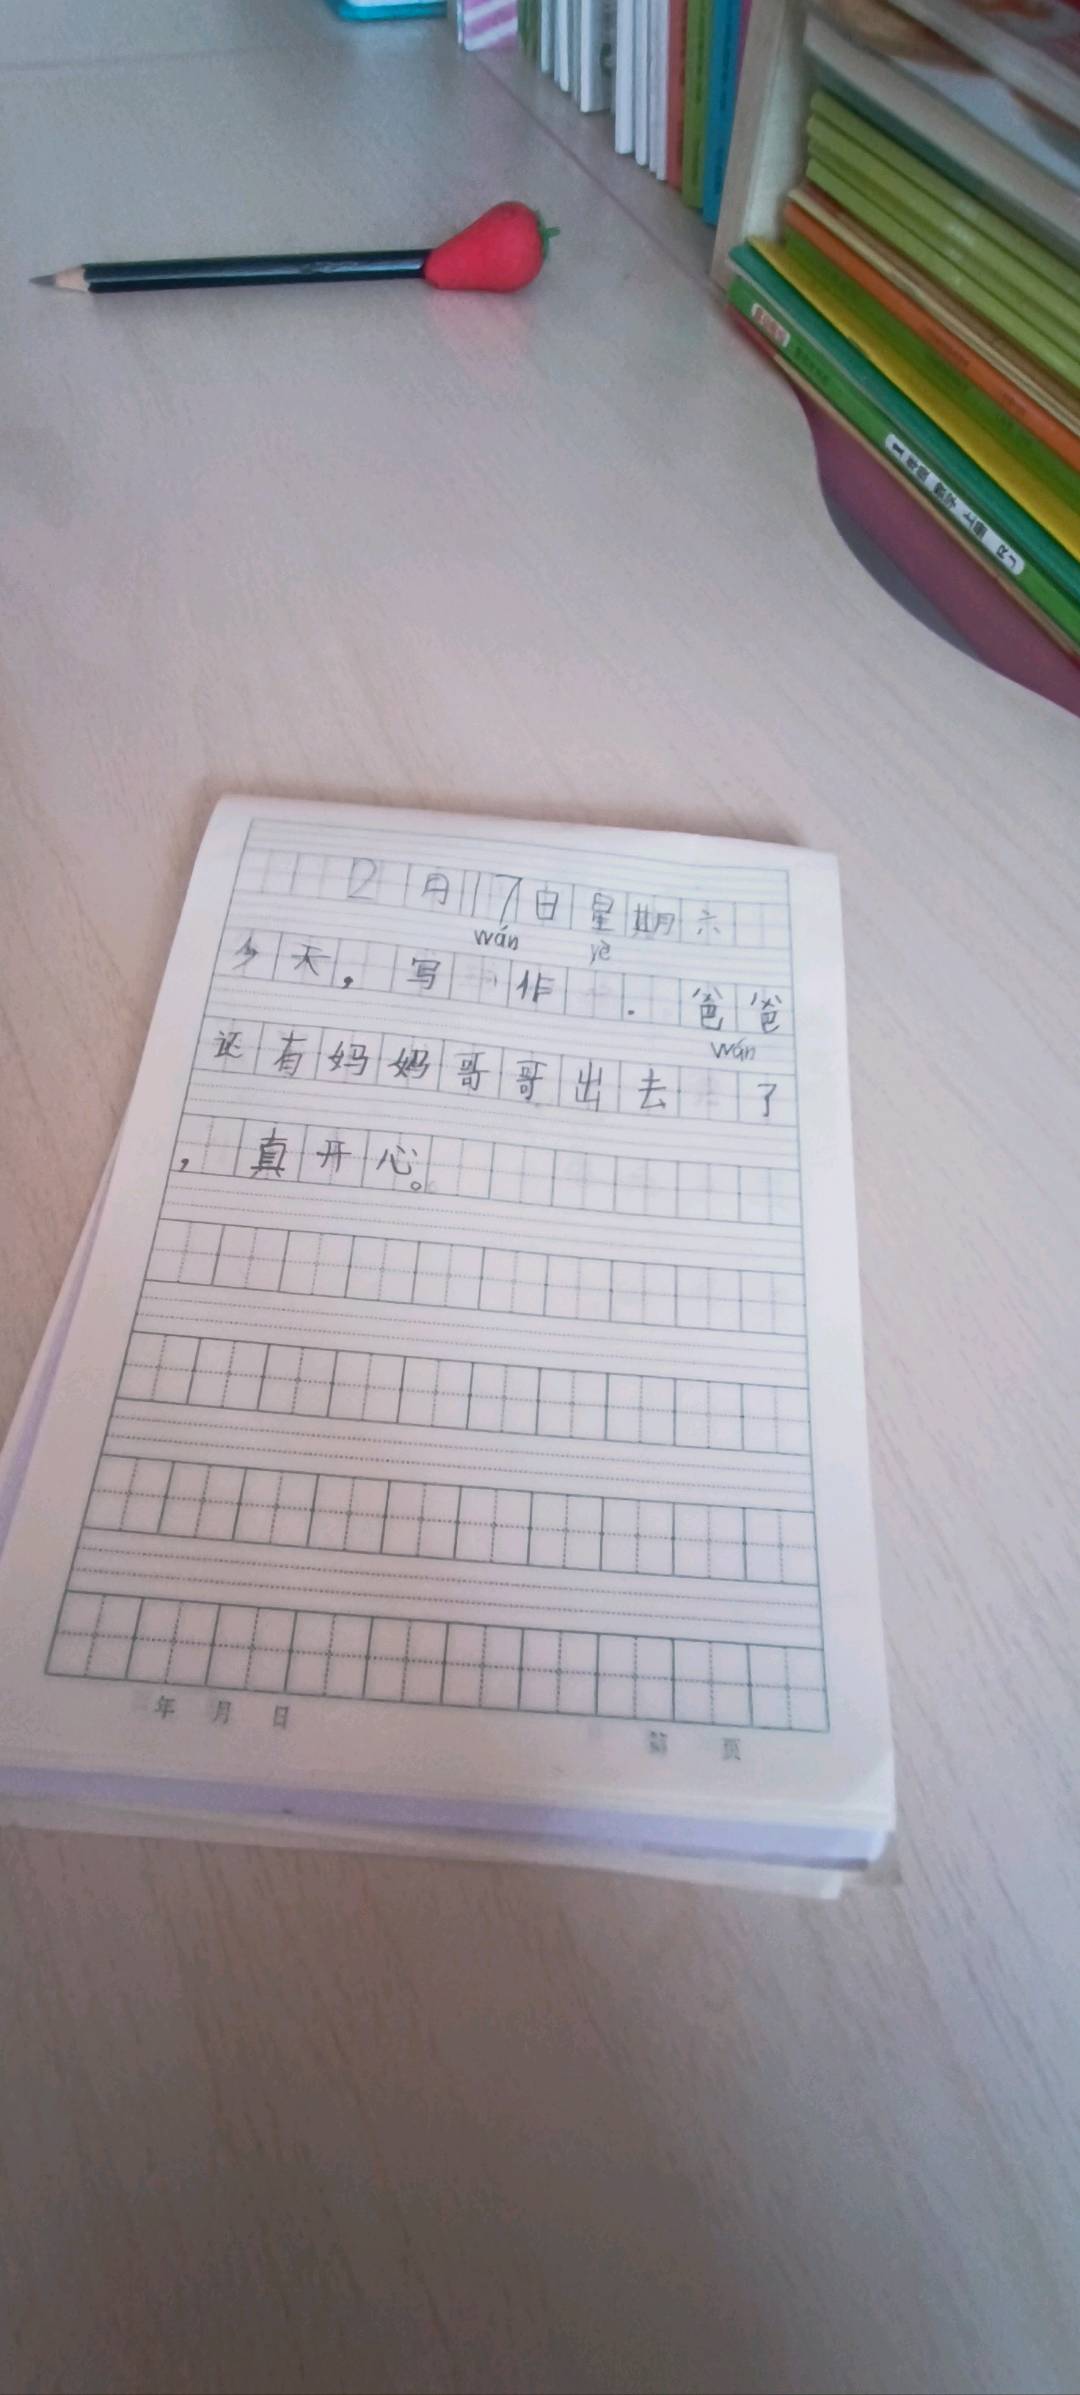 12月17日星期六
wán yè
今天，写 作 . 爸爸
wán
还有妈妈哥哥出去 了
，真开心。
年 月 日 第 页